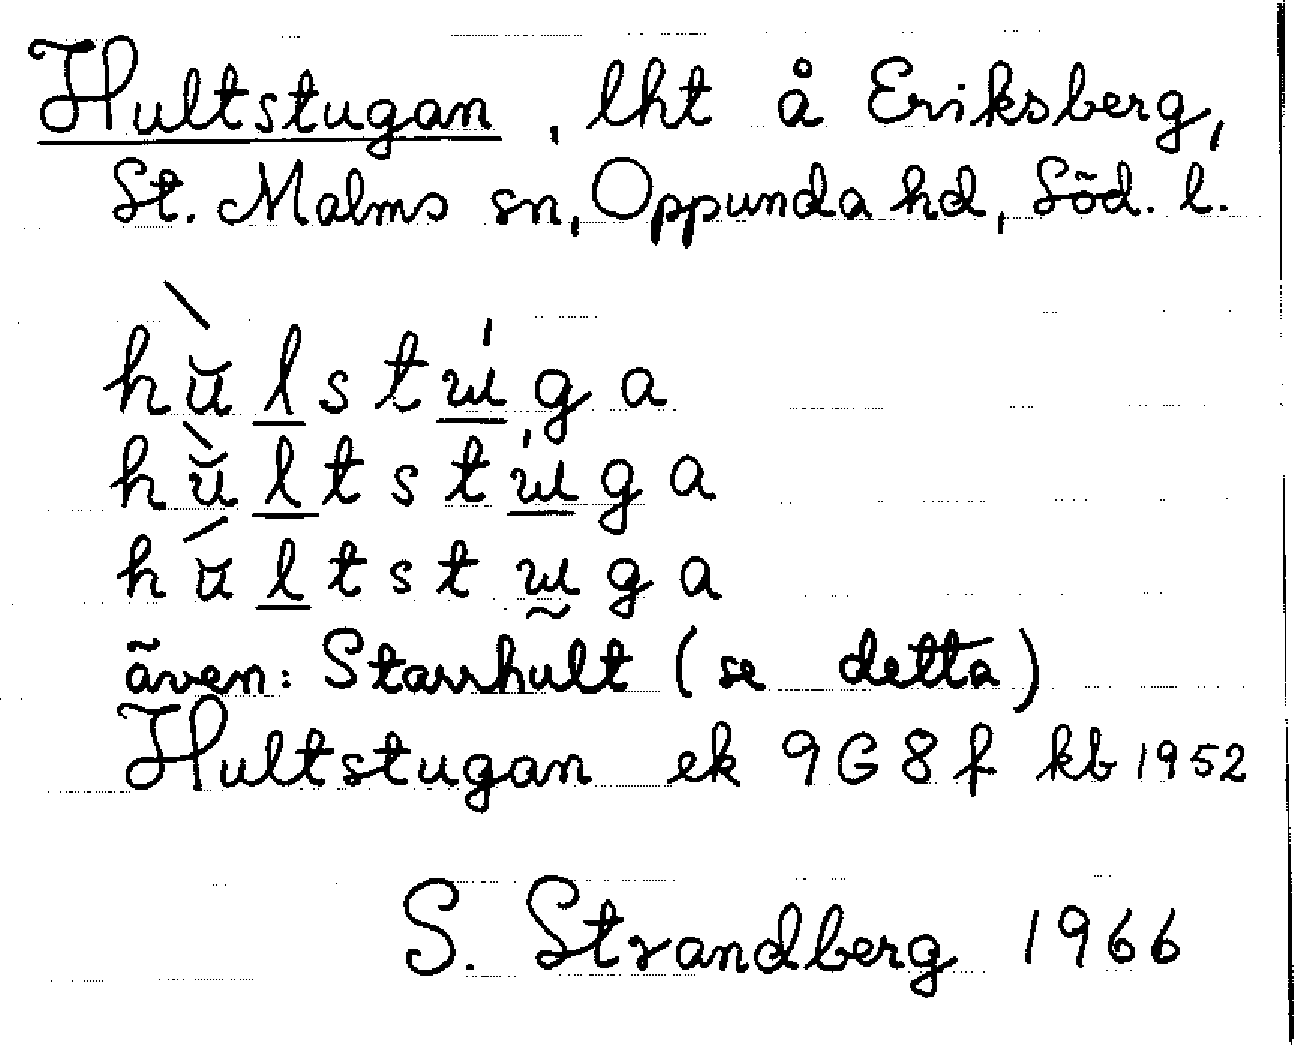 Hultstugan, lht å Eriksberg,
St. Malms sn, Oppunda hd, Söd. l.
hùlstɯ́ga
hùltstɯ́ga
húltstɯga
även: Starrhult (se detta)
Hultstugan ek 9G8f kb 1952
S. Strandberg 1966